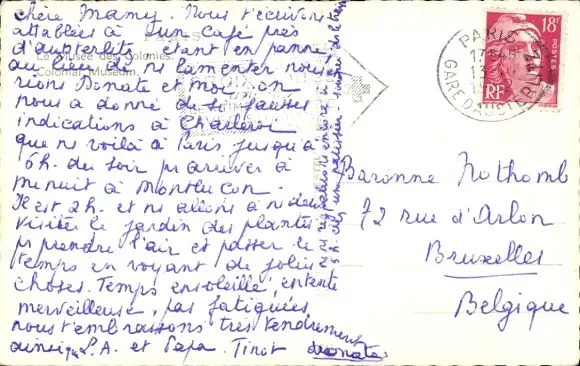 chère Mamy. Nous t'écrivons
attablées à un café près
d'austerlitz, étant en panne,
au lieu de ns lamenter nous
rions Donate et moi, on
nous a donné de si fausses
indications à Charleroi
que ns voilà à Paris jusqu'à
6h. du soir pr arriver à
minuit à Montlucon.
Il est 2h. et ns allons à ns deux
visiter le jardin des plantes
pr prendre l'air et passer le
temps en voyant de jolies
choses. Temps ensoleillé, entente
merveilleuse, pas fatiguées
nous t'embrassons très tendrement
ainsi que L.A. et Papa. Tinot Donate
Le Musée des Colonies.
Colonial Museum.
PARIS
GARE D'AUSTERLITZ
18F
POSTES
RF
Baronne Nothomb
72 rue d'Arlon
Bruxelles
Belgique